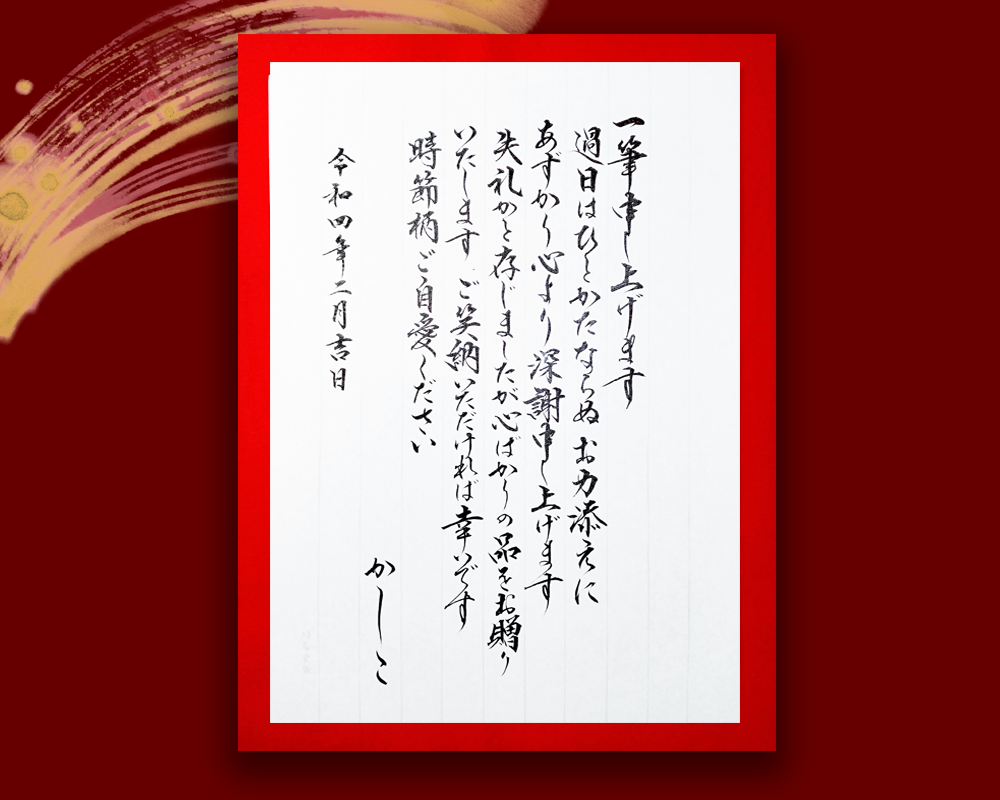 一筆申し上げます
過日はひとかたならぬ お力添えに
あずかり心より深謝申し上げます
失礼かと存じましたが心ばかりの品をお贈り
いたします ご笑納いただければ幸いです
時節柄ご自愛ください
かしこ
令和四年二月吉日